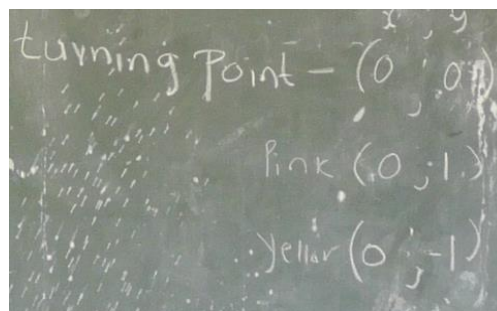 x ; y
turning Point - (0 ; 0)
Pink (0 ; 1)
yellow (0 ; -1)